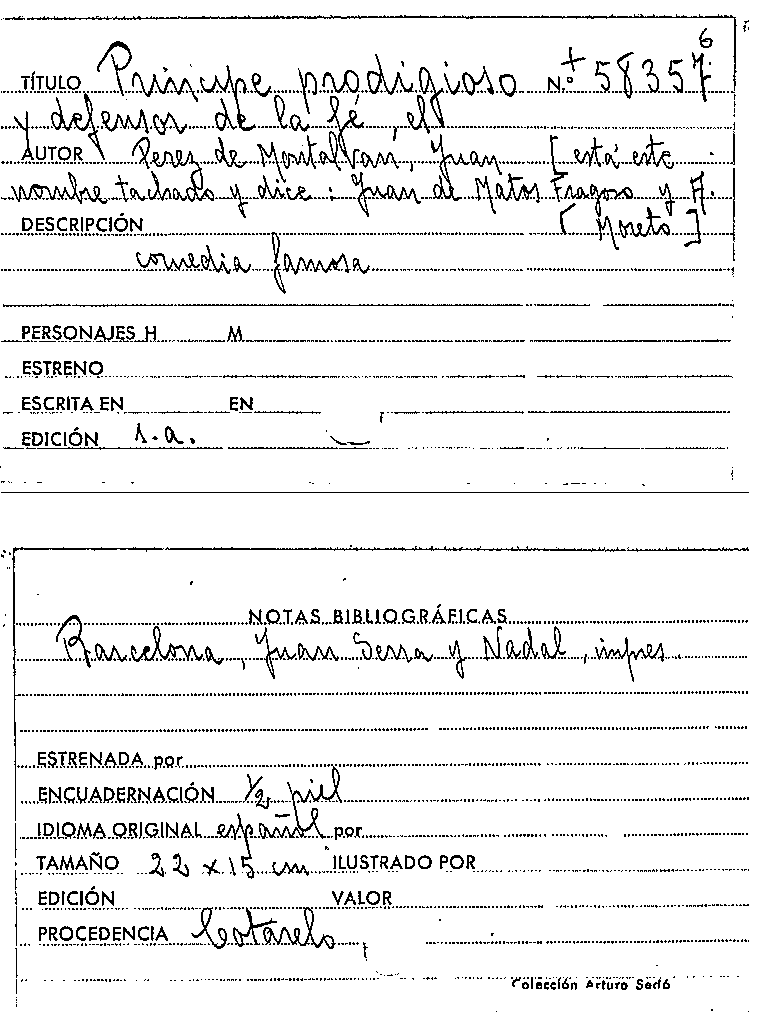 6
TÍTULO Príncipe prodigioso N.º + 58357
y defensor de la fé, el
AUTOR Perez de Montalvan, Juan [está este
nombre tachado y dice: Juan de Matos Fragoso y A.
DESCRIPCIÓN [Moreto]
comedia famosa
PERSONAJES H M
ESTRENO
ESCRITA EN EN
EDICIÓN s.a.
NOTAS BIBLIOGRÁFICAS
Barcelona, Juan Serra y Nadal, impres.
ESTRENADA por
ENCUADERNACIÓN 1/2 piel
IDIOMA ORIGINAL español por
TAMAÑO 22 x 15 cm ILUSTRADO POR
EDICIÓN VALOR
PROCEDENCIA Cotarelo
Colección Arturo Sedó